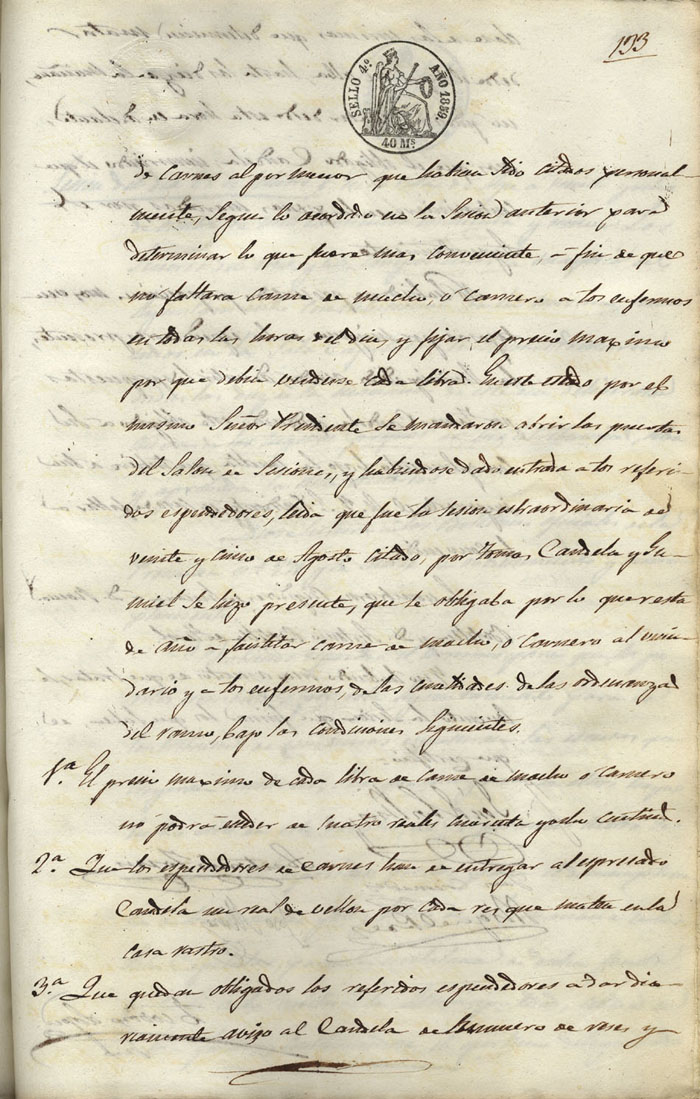 133
SELLO 4º AÑO 1859.
40 Mˢ
de carnes al por menor que habian sido citados personal-
mente, segun lo acordado en la sesion anterior para
determinar lo que fuere mas conveniente, a fin de que
no faltara carne de macho, ó carnero a los enfermos
en todas las horas del dia, y fijar el precio maximo
por que debia venderse cada libra. En este estado por el
mismo Señor Presidente se mandaron abrir las puertas
del Salon de Sesiones, y habiendose dado entrada a los referi-
dos espendedores, leida que fue la sesion estraordinaria de
veinte y cinco de Agosto citado, por Tomas Candela y Gu-
miel se hizo presente, que se obligaba por lo que resta
de año a facilitar carne de macho, o carnero al vecin-
dario y a los enfermos, de las cualidades de las ordenanzas
del ramo, bajo las condiciones siguientes.
1.ª El precio maximo de cada libra de carne de macho ó carnero
no podrá esceder de cuatro reales cuarenta y ocho centimos.
2.ª Que los espendedores de carnes han de entregar al espresado
Candela un real de vellon por cada res que maten en la
casa rastro.
3.ª Que quedan obligados los referidos espendedores a dar dia-
riamente aviso al Candela del numero de reses y